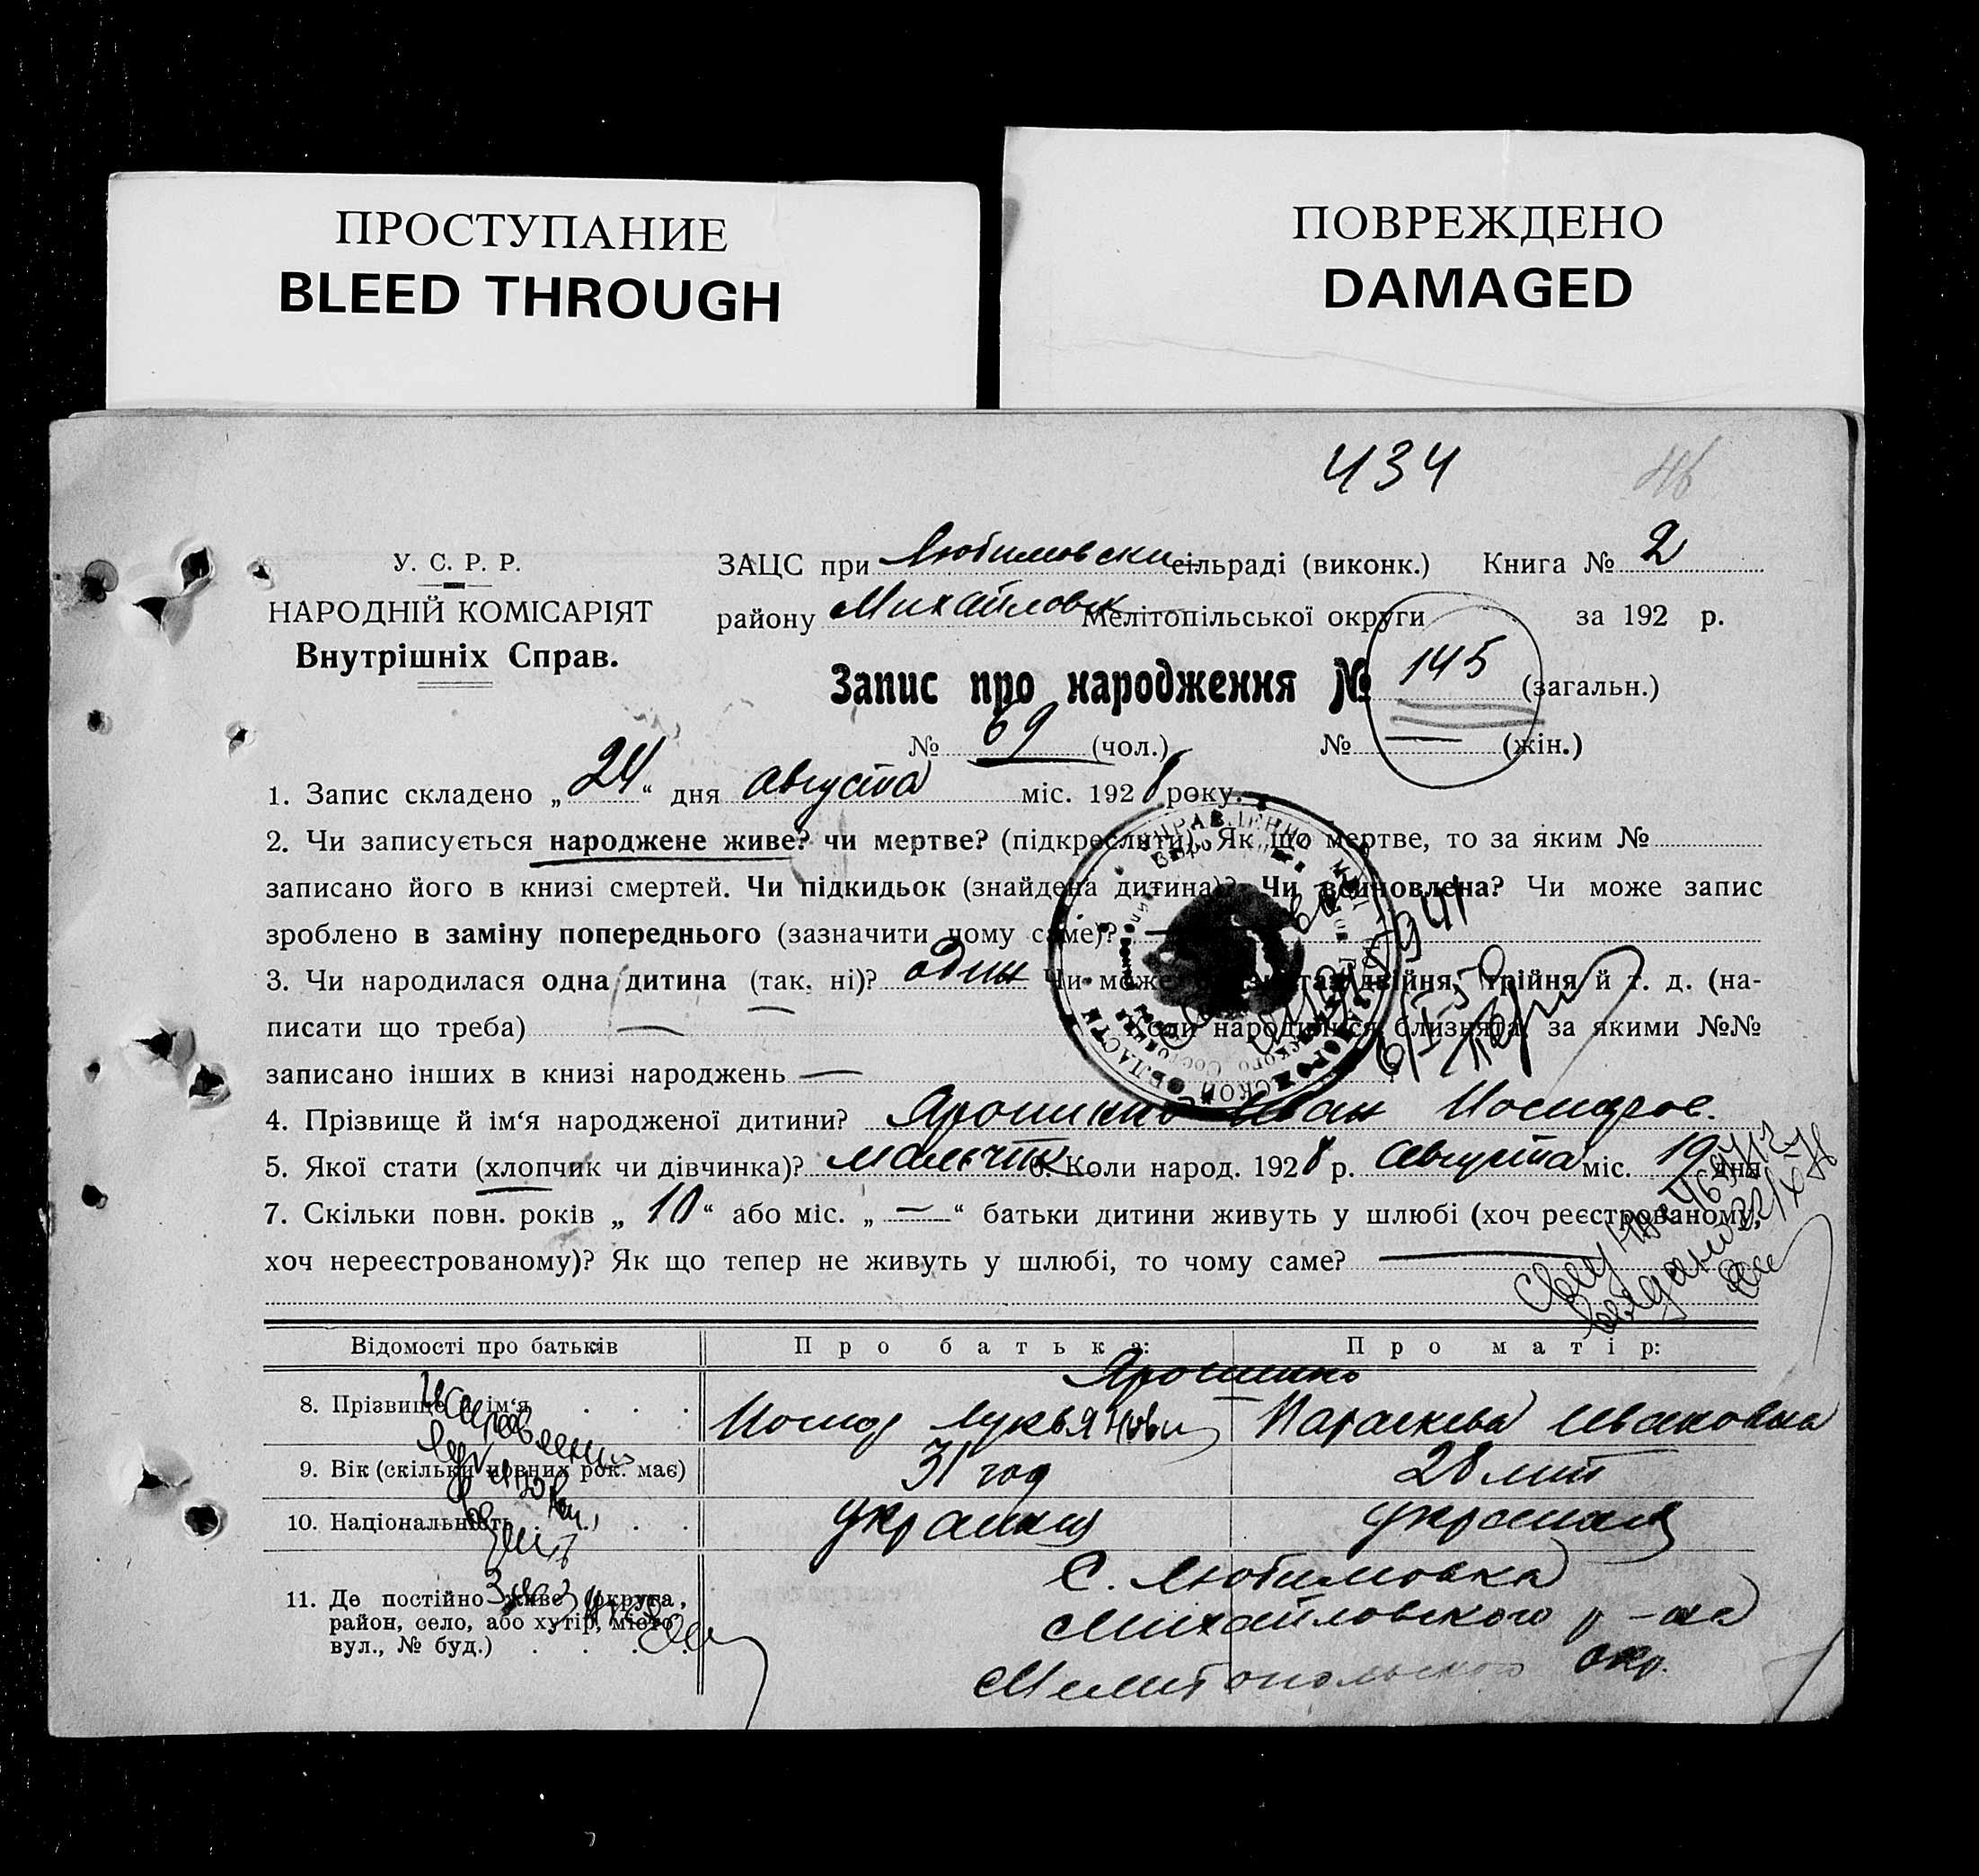 ПРОСТУПАНИЕ
BLEED THROUGH
ПОВРЕЖДЕНО
DAMAGED
434
У. С. Р. Р.
НАРОДНІЙ КОМІСАРІЯТ
Внутрішніх Справ.
ЗАЦС при Любимовски сільраді (виконк.) Книга № 2
району Михайловск Мелітопільської округи за 192 р.
Запис про народження № 145 (загальн.)
№ 69 (чол.) № — (жін.)
1. Запис складено „24“ дня августа міс. 1928 року.
2. Чи записується народжене живе? чи мертве? (підкреслити). Як що мертве, то за яким №
записано його в книзі смертей. Чи підкидьок (знайдена дитина)? Чи всиновлена? Чи може запис
зроблено в заміну попереднього (зазначити чому саме)? —
3. Чи народилася одна дитина (так, ні)? один Чи може двійня, трійня й т. д. (на-
писати що треба) — Коли народилися близнята, за якими №№
записано інших в книзі народжень —
4. Прізвище й ім‘я народженої дитини? Ярошинко Иван Иосифов.
5. Якої стати (хлопчик чи дівчинка)? мальчик 6. Коли народ. 1928 р. августа міс. 19 дня
7. Скільки повн. років „10“ або міс. „—“ батьки дитини живуть у шлюбі (хоч реєстрованому,
хоч нереєстрованому)? Як що тепер не живуть у шлюбі, то чому саме? —
Відомості про батьків Про батька: Про матір:
Ярошинко
8. Прізвище й ім‘я . . . Иосиф Лукьянови Параскева Ивановна
9. Вік (скільки повних рок. має) 31 год 28 лит
10. Національність . . . . украинц украинка
11. Де постійно живе (округа,
район, село, або хутір, місто
вул., № буд.) . . . .
С. Любимовка
Михайловского р-на
Мелитопольского окр.